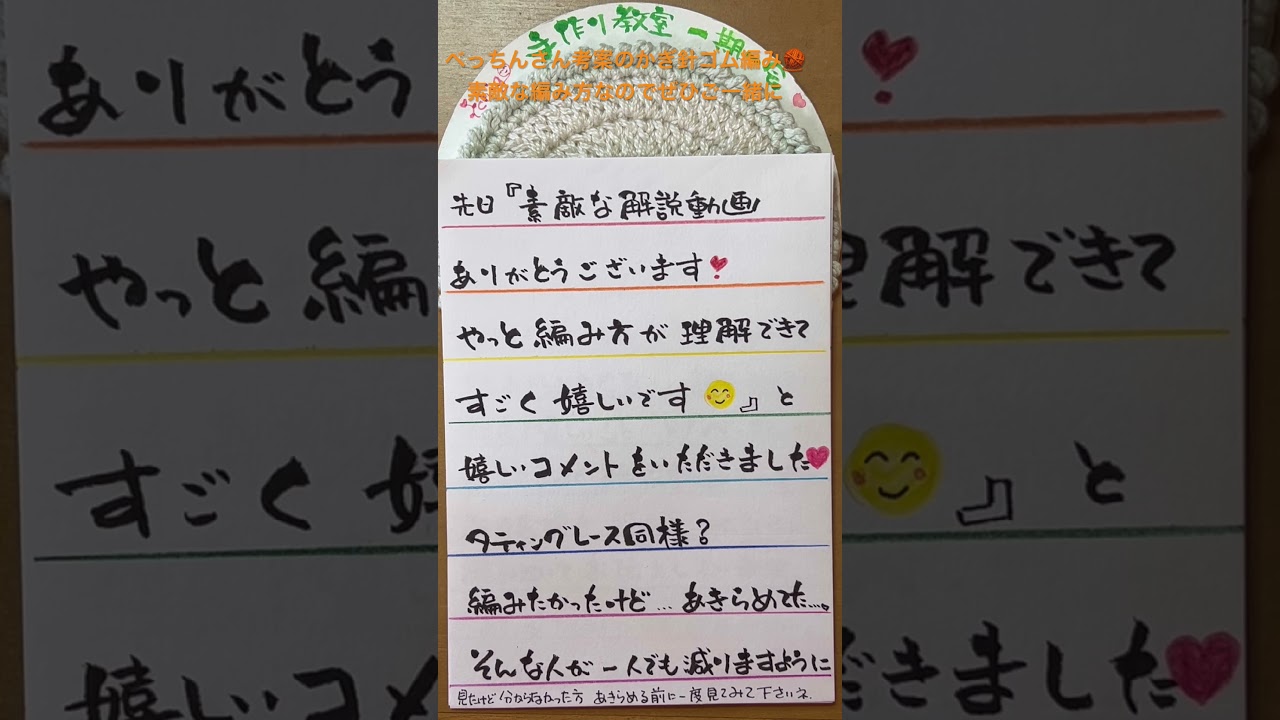 手作り教室 一期
べっちんさん考案のかぎ針ゴム編み🧶
素敵な編み方なのでぜひご一緒に
先日『素敵な解説動画
ありがとうございます❣
やっと編み方が理解できて
すごく嬉しいです😊』と
嬉しいコメントをいただきました❤
タティングレース同様？
編みたかったけど…あきらめてた…。
そんな人が一人でも減りますように
見たけど分からなかった方 あきらめる前に一度見てみて下さいネ